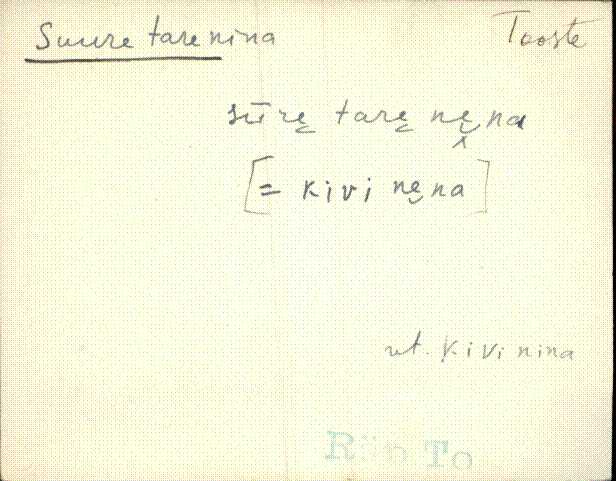 Suure tare nina
Tooste
sūrę tarę nę̬na
[= kivi nę̬na]
vt. Kivi nina
Räp To